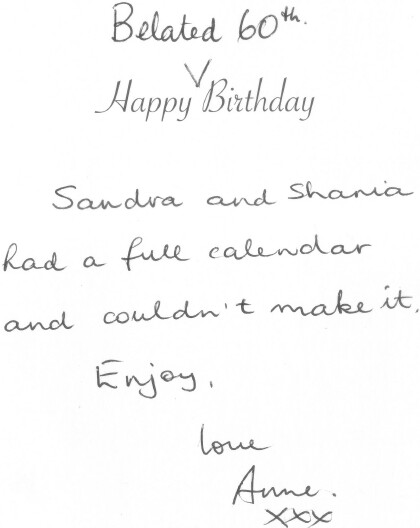 Belated 60th.
Happy Birthday
Sandra and Shania
had a full calendar
and couldn't make it.
Enjoy,
love
Anne.
xxx